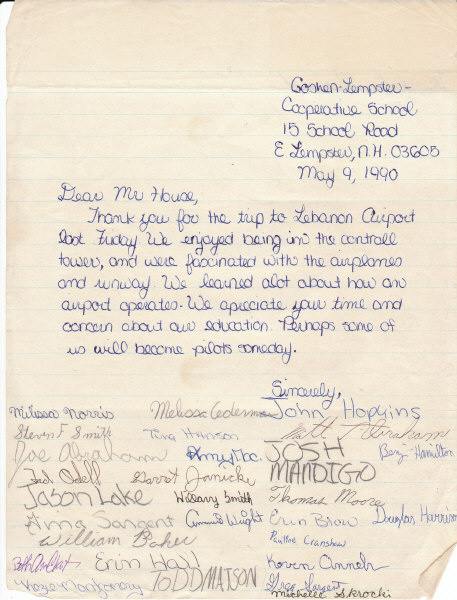 Goshen-Lempster-
Cooperative School
15 School Road
E Lempster, N.H. 03605
May 9, 1990
Dear Mr House,
Thank you for the trip to Lebanon Airport
last Friday. We enjoyed being in the controll
tower, and were fascinated with the airplanes
and runway. We learned alot about how an
airport operates. We apreciate your time and
concern about our education. Perhaps some of
us will become pilots someday.
Sincerely,
Melissa Norris Melissa Cederman John Hopgins
Steven F Smith Tina Hanson Matt Abraham
Joe Abraham Amy JOSH Benji Hamilton
Jedd Odell Garrot Janicki MANDIGO
Jason Lake Hillary Smith Thomas Moore
Anna Sargent Wright Erin Brow Douglas Harrison
William Baker Pauline Cranshaw
Beth Erin Hall Karen
Montgomery TODD MATSON Sargent
Michelle Skrocki